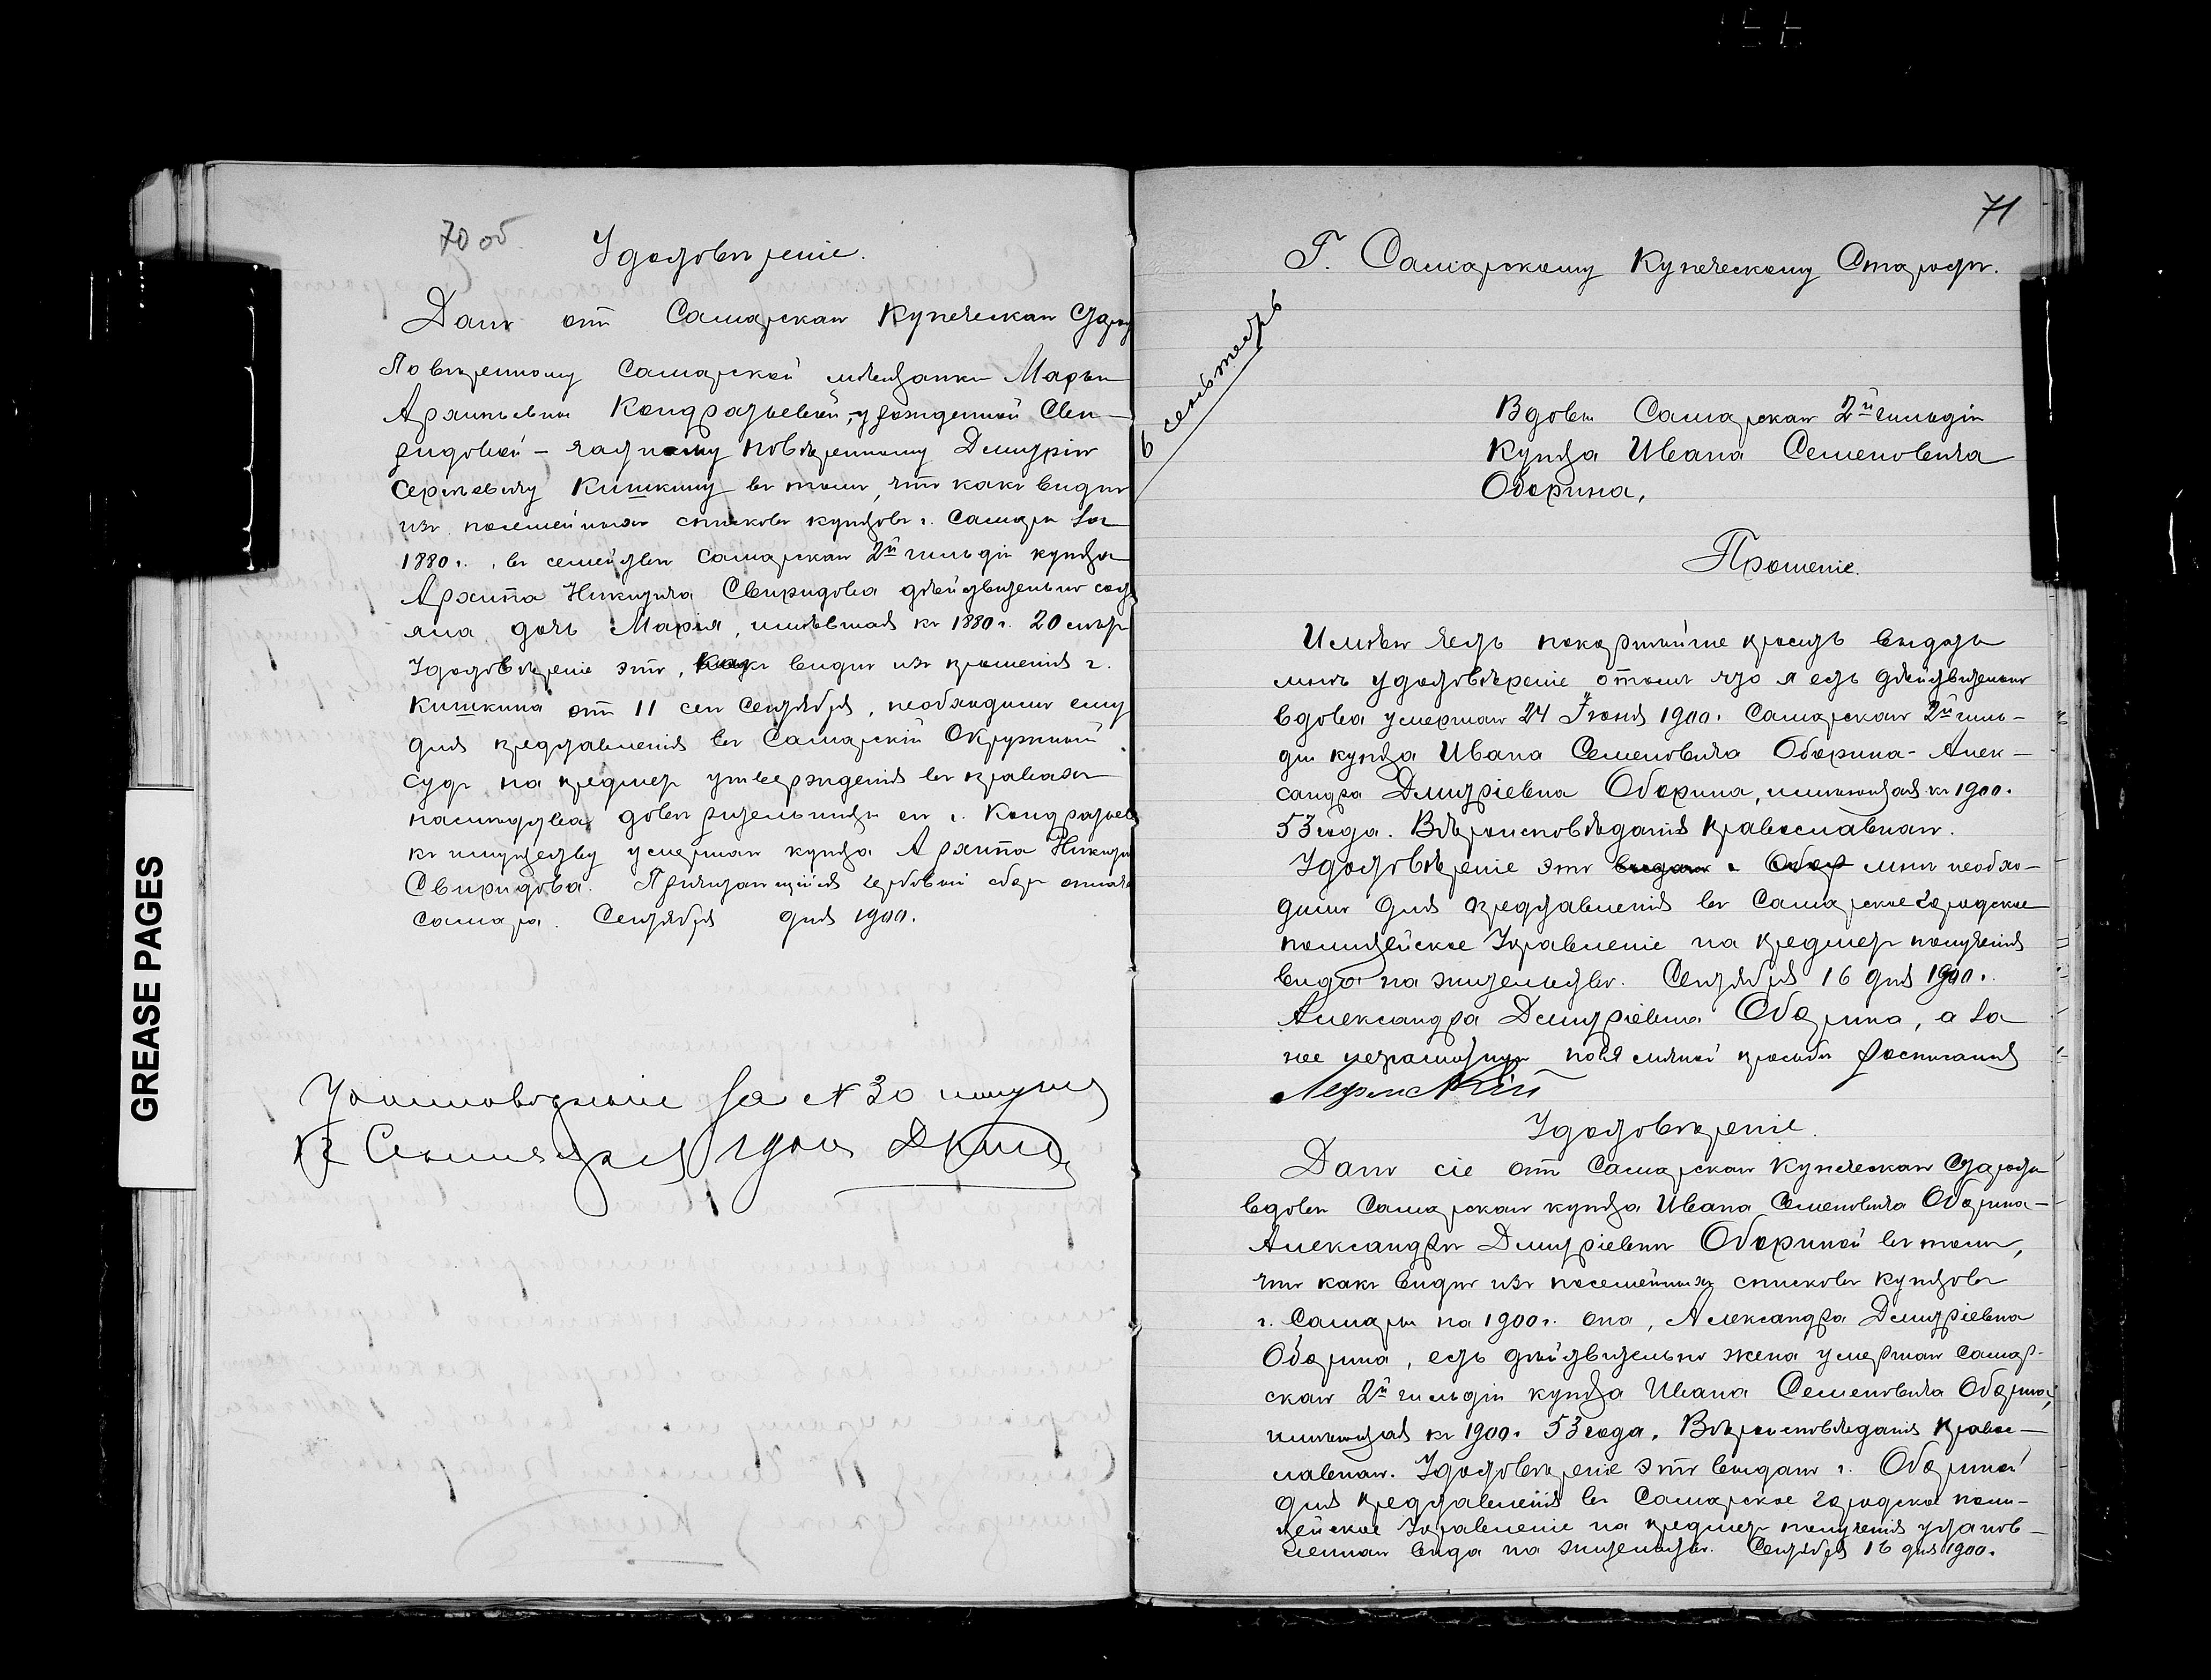 70 об.
Удостовѣреніе.
Дано отъ Самарскаго Купеческаго Старо
Повѣренному Самарской мѣщанки Марьи
Архиповны Кондратьевой, урожденной Сви-
ридовой – частному повѣренному Дмитрію
Сергѣевичу Кишкину въ томъ, что какъ видно
изъ посемейныхъ списковъ купцовъ г. Самары за
1880 г., въ семействѣ Самарскаго 2й гильдіи купца
Архипа Никитича Свиридова дѣйствительно сост
яла дочь Марія, имѣвшая къ 1880 г. 20 лѣтъ
Удостовѣреніе это, какъ видно изъ прошенія г.
Кишкина отъ 11 сего Сентября, необходимо ему
для представленія въ Самарскій Окружный
судъ на предметъ утвержденія въ правахъ
наслѣдства довѣрительницы его г. Кондратьев
къ имуществу умершаго купца Архипа Никити
Свиридова. Причитающійся гербовый сборъ оплаче
Самара. Сентября дня 1900 г.
Удостовѣреніе за № 30 получилъ
Сентября 1900 г.
71
Г. Самарскому Купеческому Старостѣ.
сентябрь
Вдовы Самарскаго 2й гильдіи
Купца Ивана Семеновича
Оборина,
Прошеніе.
Имѣю честь покорнѣйше просить выдать
мнѣ удостовѣреніе о томъ что я есть дѣйствительно
вдова умершаго 24 Іюня 1900 г. Самарскаго 2й гиль-
діи купца Ивана Семеновича Оборина - Алек-
сандра Дмитріевна Оборина, имѣющая къ 1900 г.
53 года. Вѣроисповѣданія православнаго.
Удостовѣреніе это выдано г. Обор мнѣ необхо-
димо для представленія въ Самарское городское
полицейское Управленіе на предметъ полученія
вида на жительство. Сентября 16 дня 1900 г.
Александра Дмитріевна Оборина, а за
нее неграмотную по ея личной просьбѣ росписался
Удостовѣреніе.
Дано сіе отъ Самарскаго Купеческаго Старосты
вдовѣ Самарскаго купца Ивана Семеновича Оборина -
Александрѣ Дмитріевнѣ Обориной въ томъ,
что какъ видно изъ посемейныхъ списковъ купцовъ
г. Самары на 1900 г. она, Александра Дмитріевна
Оборина, есть дѣйствительно жена умершаго Самар-
скаго 2й гильдіи купца Ивана Семеновича Оборина,
имѣющая къ 1900 г. 53 года. Вѣроисповѣданія право-
славнаго. Удостовѣреніе это выдано г. Обориной
для представленія въ Самарское городское поли-
цейское Управленіе на предметъ полученія установ-
леннаго вида на жительство. Сентября 16 дня 1900 г.
GREASE PAGES